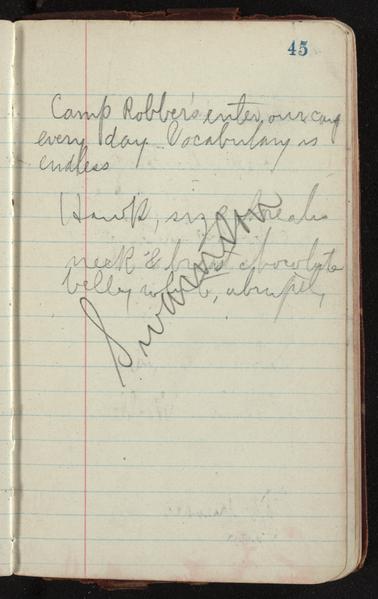 45
Camp Robbers enter our camp
every day. Vocabulary is
endless
Hawk, size
neck & breast chocolate
belly white, abruptly
Swainson